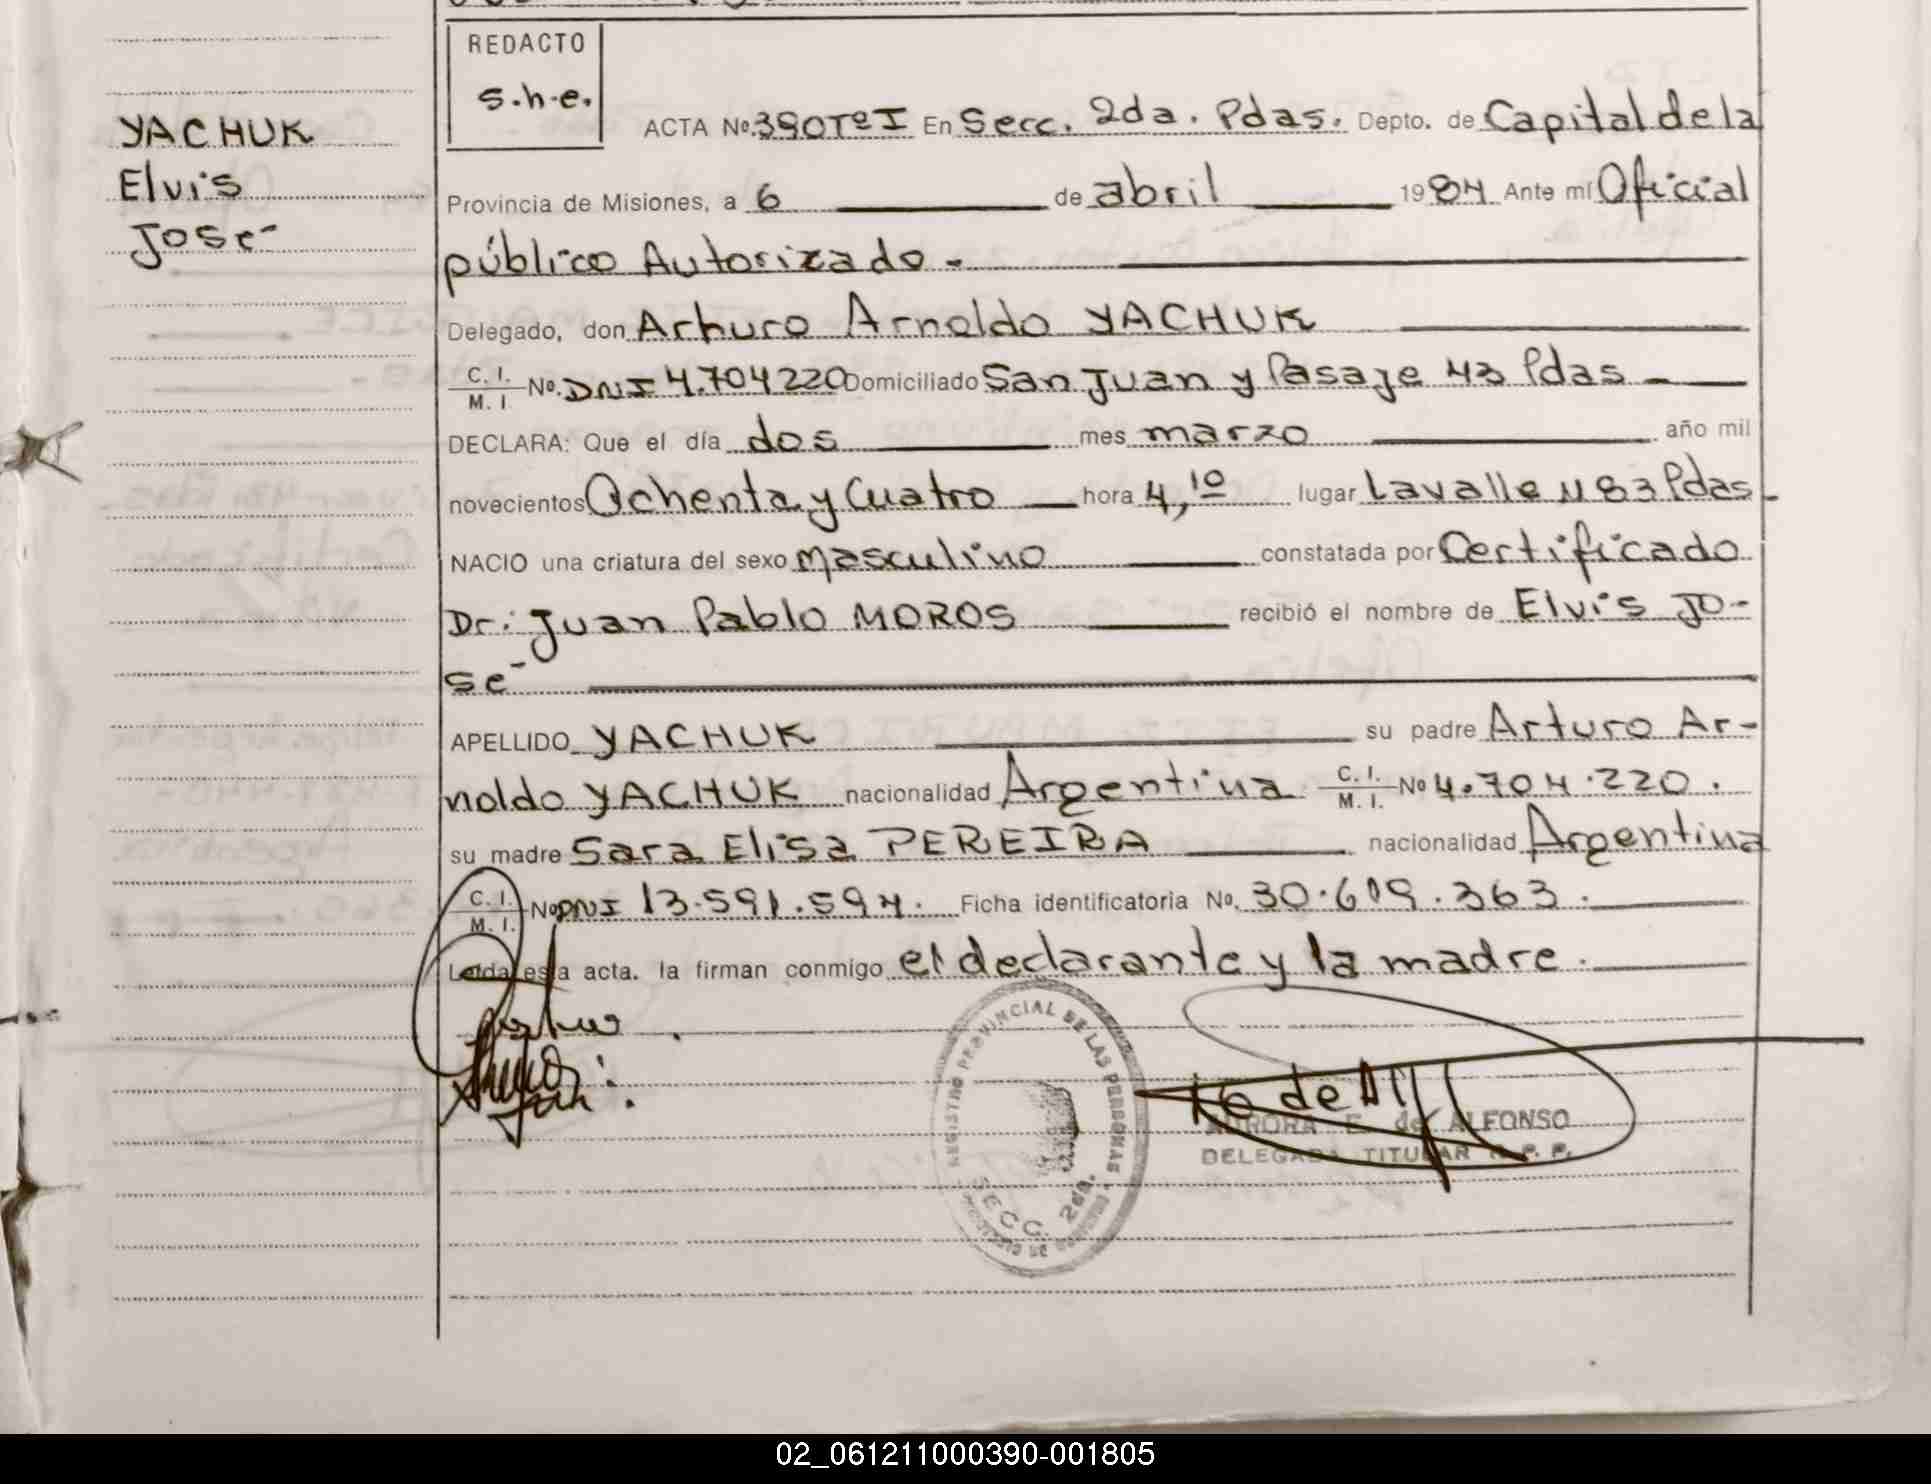 REDACTO
s.h.e.
YACHUK
Elvis
José
ACTA Nº 390 Tº I En Secc. 2da. Pdas. Depto. de Capital de la
Provincia de Misiones, a 6 de abril 1984 Ante mí Oficial
público Autorizado -
Delegado, don Arturo Arnoldo YACHUK
C. I. / M. I. Nº. DNI 4.704220 Domiciliado San Juan y Pasaje 43 Pdas -
DECLARA: Que el día dos mes marzo año mil
novecientos Ochenta y Cuatro hora 4,10 lugar Lavalle 1183 Pdas -
NACIO una criatura del sexo masculino constatada por Certificado
Dr: Juan Pablo MOROS recibió el nombre de Elvis Jo-
sé
APELLIDO YACHUK su padre Arturo Ar-
noldo YACHUK nacionalidad Argentina C. I. / M. I. Nº 4.704.220.
su madre Sara Elisa PEREIRA nacionalidad Argentina
C. I. / M. I. Nº DNI 13.591.594. Ficha identificatoria Nº. 30.619.363.
Leída esta acta. la firman conmigo el declarante y la madre.
REGISTRO PROVINCIAL DE LAS PERSONAS
SECC. 2da.
AURORA E. de ALFONSO
DELEGADA TITULAR R. P. P.
02_061211000390-001805